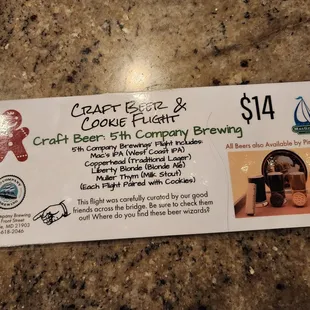 Craft Beer &
Cookie Flight
$14
Craft Beer: 5th Company Brewing
5th Company Brewings' Flight Includes:
Mac's IPA (West Coast IPA)
Copperhead (Traditional Lager)
Liberty Blonde (Blonde Ale)
Muller Thym (Milk Stout)
(Each Flight Paired with Cookies)
This flight was carefully curated by our good
friends across the bridge. Be sure to check them
out! Where do you find these beer wizards?
All Beers also Available by
Company Brewing
Front Street
MD 21903
618-2046